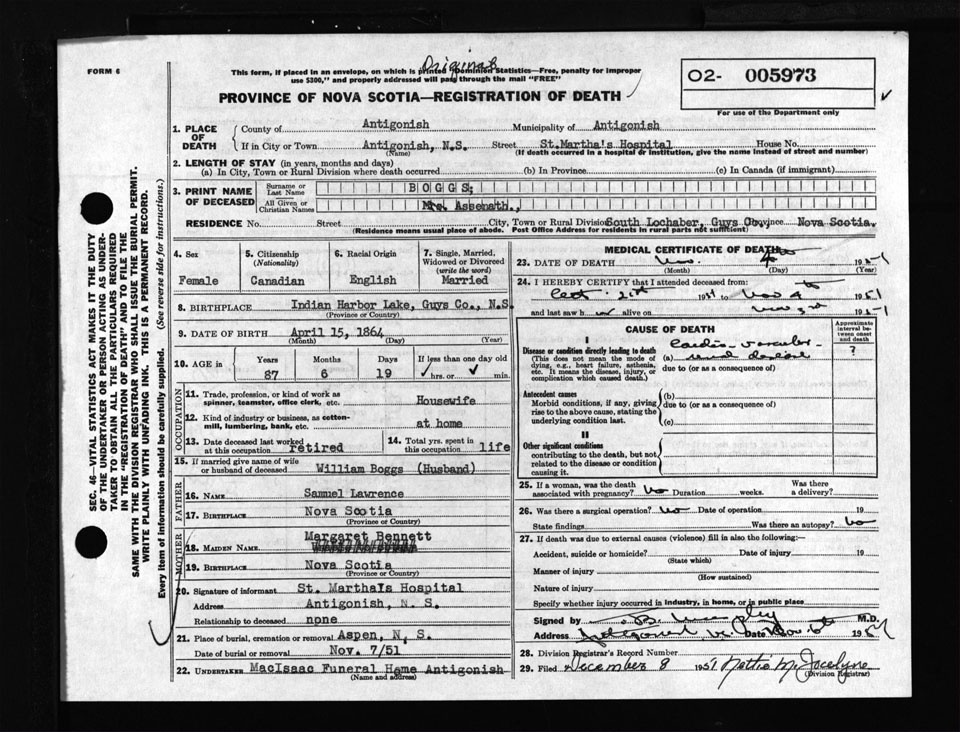 FORM 6
Original
This form, if placed in an envelope, on which is printed "Dominion Statistics—Free, penalty for improper
use $300," and properly addressed will pass through the mail "FREE"
PROVINCE OF NOVA SCOTIA—REGISTRATION OF DEATH
02- 005973
For use of the Department only
SEC. 46—VITAL STATISTICS ACT MAKES IT THE DUTY
OF THE UNDERTAKER OR PERSON ACTING AS UNDER-
TAKER TO OBTAIN ALL THE PARTICULARS REQUIRED
IN THE "REGISTRATION OF DEATH" AND TO FILE THE
SAME WITH THE DIVISION REGISTRAR WHO SHALL ISSUE THE BURIAL PERMIT.
WRITE PLAINLY WITH UNFADING INK. THIS IS A PERMANENT RECORD.
Every item of information should be carefully supplied. (See reverse side for instructions.)
1. PLACE OF DEATH
County of Antigonish Municipality of Antigonish
If in City or Town Antigonish, N.S. Street St.Martha's Hospital House No.
(Name) (If death occurred in a hospital or institution, give the name instead of street and number)
2. LENGTH OF STAY (in years, months and days)
(a) In City, Town or Rural Division where death occurred (b) In Province (c) In Canada (if immigrant)
3. PRINT NAME OF DECEASED
Surname or Last Name BOGGS;
All Given or Christian Names Mrs. Assenath.,
RESIDENCE No. Street City, Town or Rural Division South Lochaber, Guys Co., Province Nova Scotia.
(Residence means usual place of abode. Post Office Address for residents in rural parts not sufficient)
4. Sex
Female
5. Citizenship (Nationality)
Canadian
6. Racial Origin
English
7. Single, Married, Widowed or Divorced (write the word)
Married
8. BIRTHPLACE Indian Harbor Lake, Guys Co., N.S.
(Province or Country)
9. DATE OF BIRTH April 15, 1864
(Month) (Day) (Year)
10. AGE in
Years Months Days If less than one day old
87 6 19 hrs. or min.
OCCUPATION
11. Trade, profession, or kind of work as
spinner, teamster, office clerk, etc. Housewife
12. Kind of industry or business, as cotton-
mill, lumbering, bank, etc. at home
13. Date deceased last worked
at this occupation retired
14. Total yrs. spent in
this occupation life
15. If married give name of wife
or husband of deceased William Boggs (Husband)
FATHER
16. NAME Samuel Lawrence
17. BIRTHPLACE Nova Scotia
(Province or Country)
MOTHER
Margaret Bennett
18. MAIDEN NAME
19. BIRTHPLACE Nova Scotia
(Province or Country)
20. Signature of informant St. Martha's Hospital
Address Antigonish, N. S.
Relationship to deceased none
21. Place of burial, cremation or removal Aspen, N. S.
Date of burial or removal Nov. 7/51
22. UNDERTAKER MacIsaac Funeral Home Antigonish
(Name and address)
MEDICAL CERTIFICATE OF DEATH
23. DATE OF DEATH Nov. 4th 1951
(Month) (Day) (Year)
24. I HEREBY CERTIFY that I attended deceased from:
Oct. 21st 1951 to Nov 4th 1951
and last saw her alive on Nov 3rd 1951
CAUSE OF DEATH
Approximate interval between onset and death
I
Disease or condition directly leading to death
(This does not mean the mode of
dying, e.g., heart failure, asthenia,
etc. It means the disease, injury, or
complication which caused death.)
(a) cardio-vascular-
renal disease ?
due to (or as a consequence of)
Antecedent causes
Morbid conditions, if any, giving
rise to the above cause, stating the
underlying condition last.
(b)
due to (or as a consequence of)
(c)
II
Other significant conditions
contributing to the death, but not
related to the disease or condition
causing it.
25. If a woman, was the death
associated with pregnancy? No Duration weeks. Was there
a delivery?
26. Was there a surgical operation? No Date of operation 19
State findings Was there an autopsy? No
27. If death was due to external causes (violence) fill in also the following:—
Accident, suicide or homicide? Date of injury 19
(State which)
Manner of injury
(How sustained)
Nature of injury
Specify whether injury occurred in industry, in home, or in public place
Signed by M.D.
Address Antigonish N.S. Date Nov 6th 1951
28. Division Registrar's Record Number
29. Filed December 8 1951 Nettie M. Jocelyne
(Division Registrar)